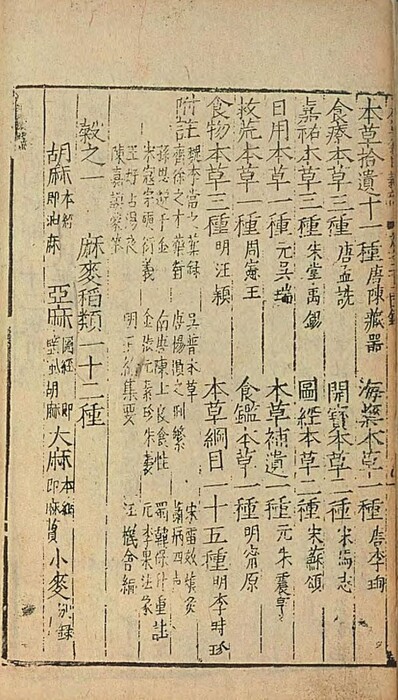 本草拾遺十一種 唐陳藏器 海藥本草一種 唐李珣
食療本草三種 唐孟詵 開寶本草二種 宋馬志
嘉祐本草三種 宋掌禹錫 圖經本草二種 宋蘇頌
日用本草一種 元吳瑞 本草補遺一種 元朱震亨
救荒本草一種 周憲王 食鑑本草一種 明甯原
食物本草三種 明汪穎 本草綱目一十五種 明李時珍
附註 魏李當之藥錄 吳普本草 宋雷斅炮炙
齊徐之才藥對 唐楊損之刪繁 蕭炳四聲
孫思邈千金 南唐陳士良食性 蜀韓保昇重註
宋寇宗奭衍義 金張元素珍珠囊 元李杲法象
王好古湯液 明王綸集要 汪機會編
陳嘉謨蒙筌
穀之一 麻麥稻類一十二種
胡麻 本經 即油麻 亞麻 圖經 即壁虱胡麻 大麻 本經 即麻蕡 小麥 別錄